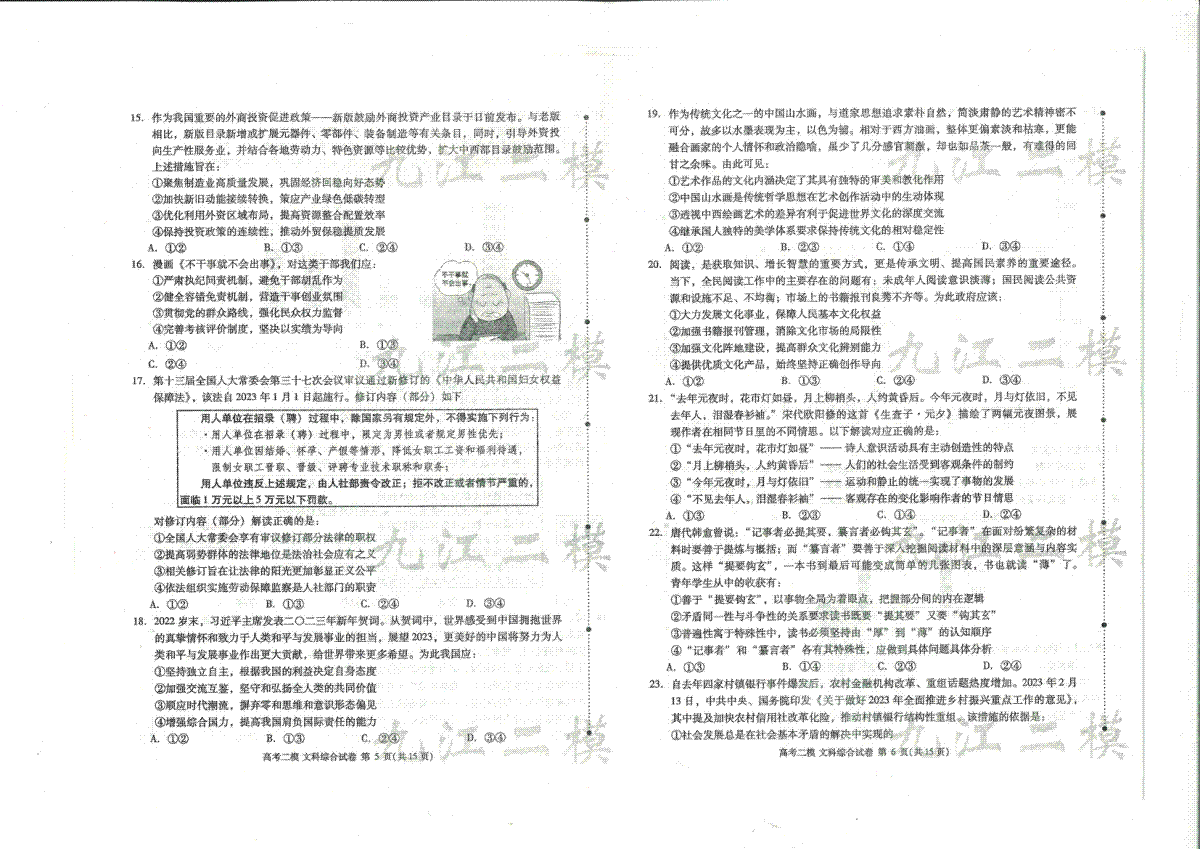 15. 作为我国重要的外商投资促进政策——新版鼓励外商投资产业目录于日前发布。与老版
相比，新版目录新增或扩展元器件、零部件、装备制造等有关条目，同时，引导外资投
向生产性服务业，并结合各地劳动力、特色资源等比较优势，扩大中西部目录鼓励范围。
上述措施旨在：
①聚焦制造业高质量发展，巩固经济回稳向好态势
②加快新旧动能接续转换，策应产业绿色低碳转型
③优化利用外资区域布局，提高资源整合配置效率
④保持投资政策的连续性，推动外贸保稳提质发展
A. ①② B. ①③ C. ②④ D. ③④
16. 漫画《不干事就不会出事》，对这类干部我们应：
①严肃执纪问责机制，避免干部胡乱作为
②健全容错免责机制，营造干事创业氛围
③贯彻党的群众路线，强化民众权力监督
④完善考核评价制度，坚决以实绩为导向
A. ①② B. ①③
C. ②④ D. ③④
不干事就
不会出事
17. 第十三届全国人大常委会第三十七次会议审议通过新修订的《中华人民共和国妇女权益
保障法》，该法自 2023 年 1 月 1 日起施行。修订内容（部分）如下
用人单位在招录（聘）过程中，除国家另有规定外，不得实施下列行为：
·用人单位在招录（聘）过程中，限定为男性或者规定男性优先；
·用人单位因结婚、怀孕、产假等情形，降低女职工工资和福利待遇，
限制女职工晋职、晋级、评聘专业技术职称和职务；
用人单位违反上述规定，由人社部责令改正；拒不改正或者情节严重的，
面临 1 万元以上 5 万元以下罚款。
对修订内容（部分）解读正确的是：
①全国人大常委会享有审议修订部分法律的职权
②提高弱势群体的法律地位是法治社会应有之义
③相关修订旨在让法律的阳光更加彰显正义公平
④依法组织实施劳动保障监察是人社部门的职责
A. ①② B. ①③ C. ②④ D. ③④
18. 2022 岁末，习近平主席发表二〇二三年新年贺词。从贺词中，世界感受到中国拥抱世界
的真挚情怀和致力于人类和平与发展事业的担当，展望 2023，更美好的中国将努力为人
类和平与发展事业作出更大贡献，给世界带来更多希望。为此我国应：
①坚持独立自主，根据我国的利益决定自身态度
②加强交流互鉴，坚守和弘扬全人类的共同价值
③顺应时代潮流，摒弃零和思维和意识形态偏见
④增强综合国力，提高我国肩负国际责任的能力
A. ①② B. ①③ C. ②④ D. ③④
高考二模 文科综合试卷 第 5 页(共 15 页)
19. 作为传统文化之一的中国山水画，与道家思想追求素朴自然，简淡肃静的艺术精神密不
可分，故多以水墨表现为主，以色为辅。相对于西方油画，整体更偏素淡和枯寒，更能
融合画家的个人情怀和政治隐喻，虽少了几分感官刺激，却也如品茶一般，有难得的回
甘之余味。由此可见：
①艺术作品的文化内涵决定了其具有独特的审美和教化作用
②中国山水画是传统哲学思想在艺术创作活动中的生动体现
③透视中西绘画艺术的差异有利于促进世界文化的深度交流
④继承国人独特的美学体系要求保持传统文化的相对稳定性
A. ①② B. ②③ C. ①④ D. ③④
20. 阅读，是获取知识、增长智慧的重要方式，更是传承文明、提高国民素养的重要途径。
当下，全民阅读工作中的主要存在的问题有：未成年人阅读意识淡薄；国民阅读公共资
源和设施不足、不均衡；市场上的书籍报刊良莠不齐等。为此政府应该：
①大力发展文化事业，保障人民基本文化权益
②加强书籍报刊管理，消除文化市场的局限性
③加强文化阵地建设，提高群众文化辨别能力
④提供优质文化产品，始终坚持正确创作导向
A. ①② B. ①③ C. ②④ D. ③④
21. “去年元夜时，花市灯如昼，月上柳梢头，人约黄昏后。今年元夜时，月与灯依旧，不见
去年人，泪湿春衫袖。”宋代欧阳修的这首《生查子·元夕》描绘了两幅元夜图景，展
现作者在相同节日里的不同情思。以下解读对应正确的是：
①“去年元夜时，花市灯如昼”—— 诗人意识活动具有主动创造性的特点
②“月上柳梢头，人约黄昏后”—— 人们的社会生活受到客观条件的制约
③“今年元夜时，月与灯依旧”—— 运动和静止的统一实现了事物的发展
④“不见去年人，泪湿春衫袖”—— 客观存在的变化影响作者的节日情思
A. ①③ B. ②③ C. ②④ D. ①④
22. 唐代韩愈曾说：“记事者必提其要，纂言者必钩其玄”。“记事者”在面对纷繁复杂的材
料时要善于提炼与概括；而“纂言者”要善于深入挖掘阅读材料中的深层意涵与内容实
质。这样“提要钩玄”，一本书到最后可能变成简单的几张图表，书也就读“薄”了。
青年学生从中的收获有：
①善于“提要钩玄”，以事物全局为着眼点，把握部分间的内在逻辑
②矛盾同一性与斗争性的关系要求读书既要“提其要”又要“钩其玄”
③普遍性寓于特殊性中，读书必须坚持由“厚”到“薄”的认知顺序
④“记事者”和“纂言者”各有其特殊性，应做到具体问题具体分析
A. ①③ B. ①④ C. ②③ D. ②④
23. 自去年四家村镇银行事件爆发后，农村金融机构改革、重组话题热度增加。2023 年 2 月
13 日，中共中央、国务院印发《关于做好 2023 年全面推进乡村振兴重点工作的意见》，
其中提及加快农村信用社改革化险，推动村镇银行结构性重组。该措施的依据是：
①社会发展总是在社会基本矛盾的解决中实现的
高考二模 文科综合试卷 第 6 页(共 15 页)
九江二模